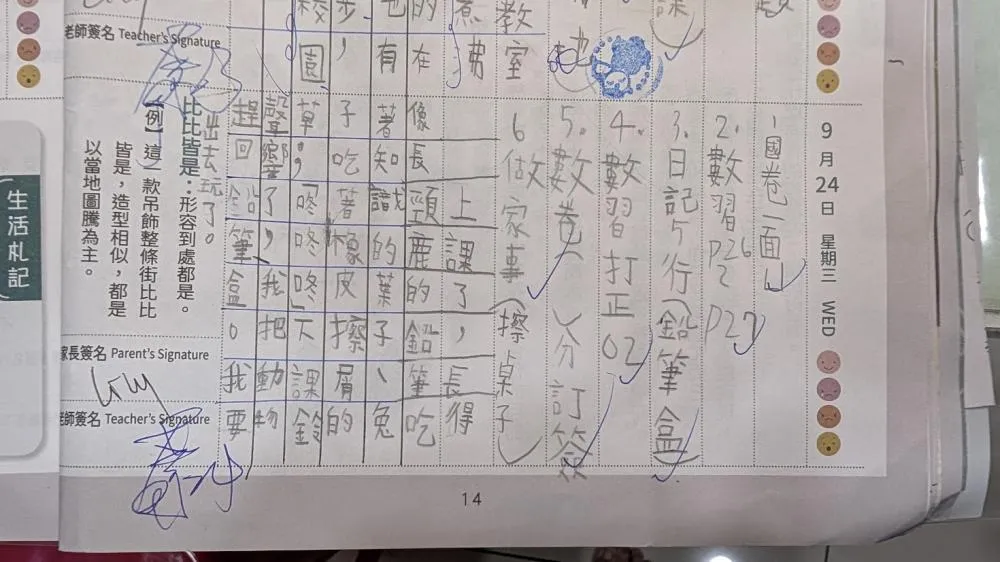 教室
的在
也有
步，
校園
老師簽名 Teacher's Signature
9月24日 星期三 WED
1國卷一面
2.數習P26~P27
3.日記5行(鉛筆盒)
4.數習打正02
5.數卷(一)分訂簽
6做家事(擦桌子)
上課了，長得
像長頸鹿的鉛筆吃
著知識的葉子、兔
子吃著橡皮擦屑的
草；「咚咚咚」下課鈴
聲響了，我把動物
趕回鉛筆盒。我要
出去玩了。
比比皆是：形容到處都是。
【例】這一款吊飾整條街比比
皆是，造型相似，都是
以當地圖騰為主。
家長簽名 Parent's Signature
老師簽名 Teacher's Signature
生活札記
14